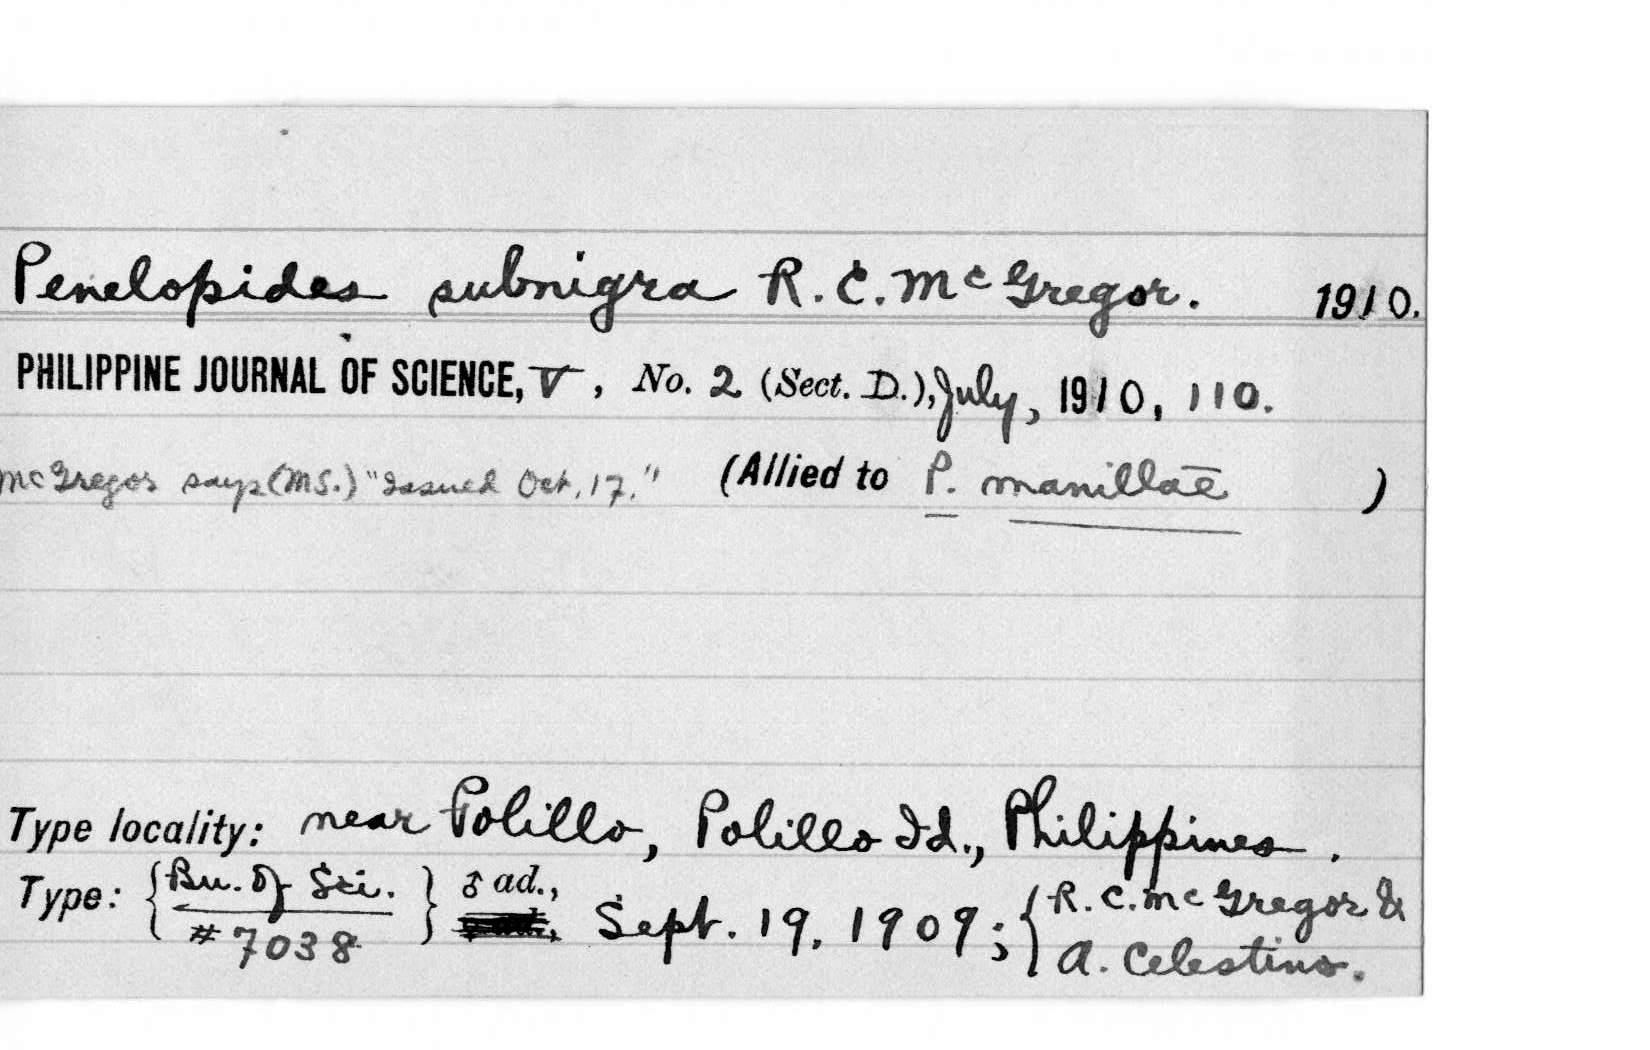 Penelopides subnigra R. C. McGregor. 1910.
PHILIPPINE JOURNAL OF SCIENCE, V, No. 2 (Sect. D.), July, 1910, 110.
McGregor says (MS.) "Issued Oct. 17." (Allied to P. manillae )
Type locality: near Polillo, Polillo Id., Philippines.
Type: { Bu. of Sci. } ♂ ad., Sept. 19, 1909; { R. C. McGregor &
#7038 A. Celestino.